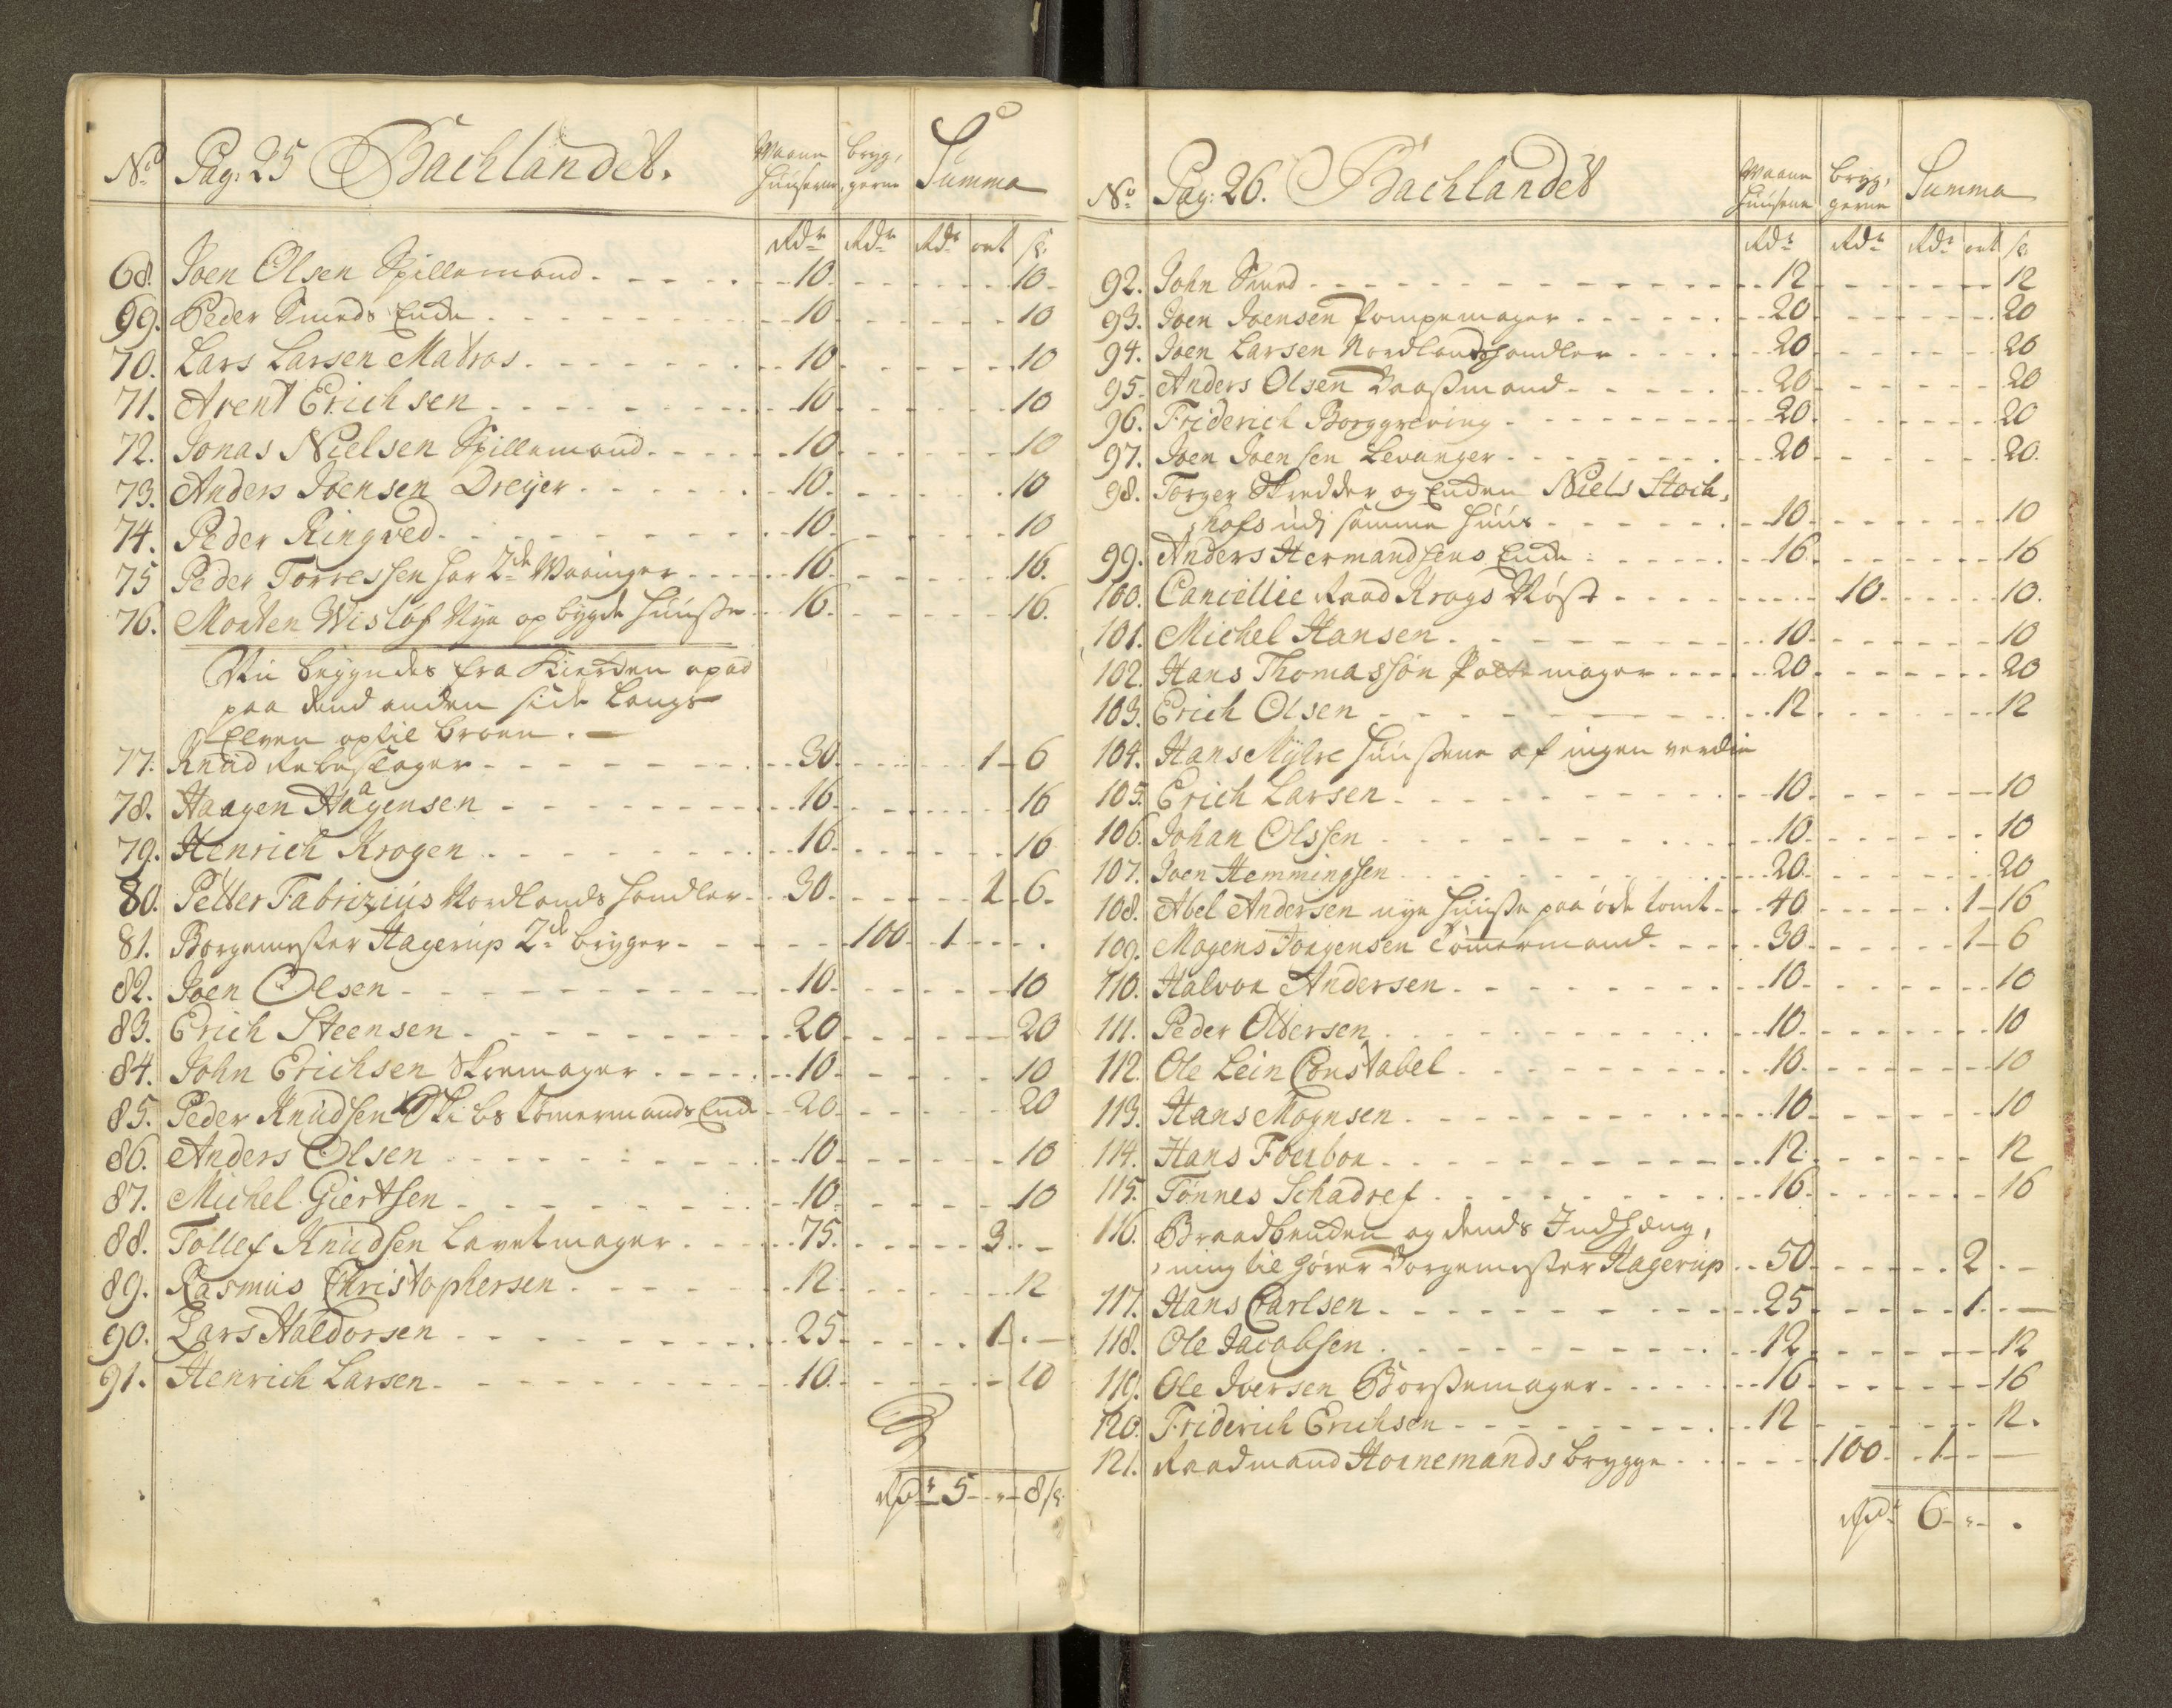 No Pag: 25 Bachlandet. Waane Huuserne, bryg, gerne Summa
Rdr Rdr Rdr ort s:
68. Joen Olsen Spillemand - - 10 - - 10
69. Peder Smeds Encke - - 10 - - 10
70. Lars Larsen Matros - - 10 - - 10
71. Arent Erichsen - - 10 - - 10
72. Jonas Nielsen Spillemand - - 10 - - 10
73. Anders Joensen Dreyer - - 10 - - 10
74. Peder Ringved - - 10 - - 10
75 Peder Torressen har 2de Waaninger - - 16 - - 16.
76. Morten Wisløf Nye opbygde Huusse - - 16 - - 16.
Nu begyndes fra Kierken opad
paa dend anden side langs
Elven optil broen. —
77. Knud Rebeslager - - 30 - - 1 - 6
78. Haagen Haagensen - - 16 - - 16
79. Henrich Krogen - - 16 - - 16
80. Petter Fabrizius Nordlands Handler - - 30 - - 1 - 6
81. Borgemester Hagerup 2de brygger - - 100 - 1 - -
82. Joen Olsen - - 10 - - 10
83. Erich Steensen - - 20 - - 20
84. John Erichsen Skomager - - 10 - - 10
85. Peder Knudsen Skibs tømermands Enck - - 20 - - 20
86. Anders Olsen - - 10 - - 10
87. Michel Giertsen - - 10 - - 10
88. Tollef Knudsen Lavetmager - - 75 - - 3 - -
89. Rasmus Christophersen - - 12 - - 12
90. Lars Haldorsen - - 25 - - 1 - —
91. Henrich Larsen - - 10 - - 10
Rdr 5 - " - 8 s:
No Pag: 26. Bachlandet Waane Huusene bryg, gerne Summa
Rdr Rdr Rdr ort s:
92. John Smed - - 12 - - 12
93. Joen Joensen Pompemager - - 20 - - 20
94. Joen Larsen Nordlandshandler - - 20 - - 20
95. Anders Olsen Baassmand - - 20 - - 20
96. Friderich Borggreving - - 20 - - 20
97. Joen Joensen Levanger - - 20 - - 20.
98. Torger Skredder og Encken Niels Stock,
,hofs udj samme Huus - - 10 - - 10
99. Anders Hermandsens Encke - - 16 - - 16
100. Cancellie Raad Krogs Nøst - - 10 - - 10.
101. Michel Hansen - - 10 - - 10
102. Hans Thomassøn Pottemager - - 20 - - 20
103. Erich Olsen - - 12 - - 12
104. Hans Myhre Huussene af ingen verdie
105. Erich Larsen - - 10 - - 10
106. Johan Olssen - - 10 - - 10
107. Joen Hemmingsen - - 20 - - 20
108. Abel Andersen nye Huusse paa øde tomt - - 40 - - 1 - 16
109. Mogens Jørgensen Tømermand - - 30 - - 1 - 6
110. Halvor Andersen - - 10 - - 10
111. Peder Ottersen - - 10 - - 10
112. Ole Lein Constabel - - 10 - - 10
113. Hans Mognsen - - 10 - - 10
114. Hans Foerbor - - 12 - - 12
115. Tønnes Schadref - - 16 - - 16
116. Braadbencken og dends Indhæng,
,ning tilhører Borgemester Hagerup - - 50 - - 2 - -
117. Hans Carlsen - - 25 - - 1 - —
118. Ole Jacobsen - - 12 - - 12
119. Ole Iversen Børstemager - - 16 - - 16
120. Friderich Erichsen - - 12 - - 12.
121. Raadmand Hornemands brygge - - 100 - - 1 - —
Rdr 6 - " - .